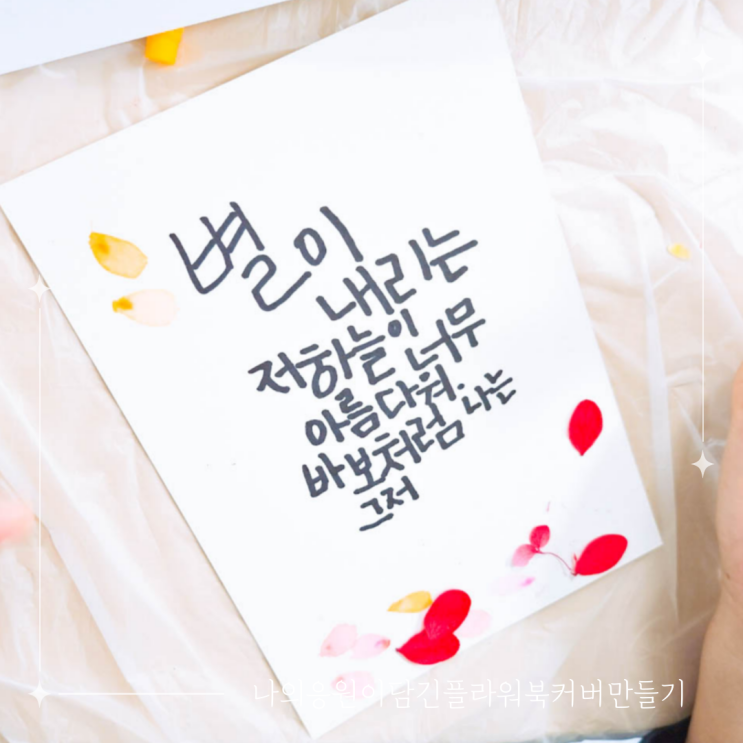 별이
내리는
저하늘이
너무
아름다워.
바보처럼 나는
그저
나의응원이담긴플라워북커버만들기